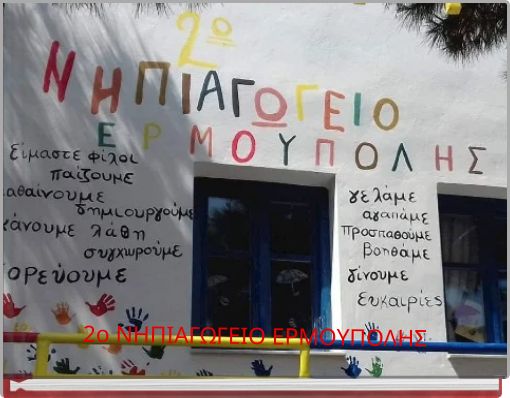 2ο
ΝΗΠΙΑΓΩΓΕΙΟ
ΕΡΜΟΥΠΟΛΗΣ
είμαστε φίλοι
παίζουμε
μαθαίνουμε
δημιουργούμε
κάνουμε λάθη
συγχωρούμε
χορεύουμε
γελάμε
αγαπάμε
προσπαθούμε
βοηθάμε
δίνουμε
ευκαιρίες
2ο ΝΗΠΙΑΓΩΓΕΙΟ ΕΡΜΟΥΠΟΛΗΣ